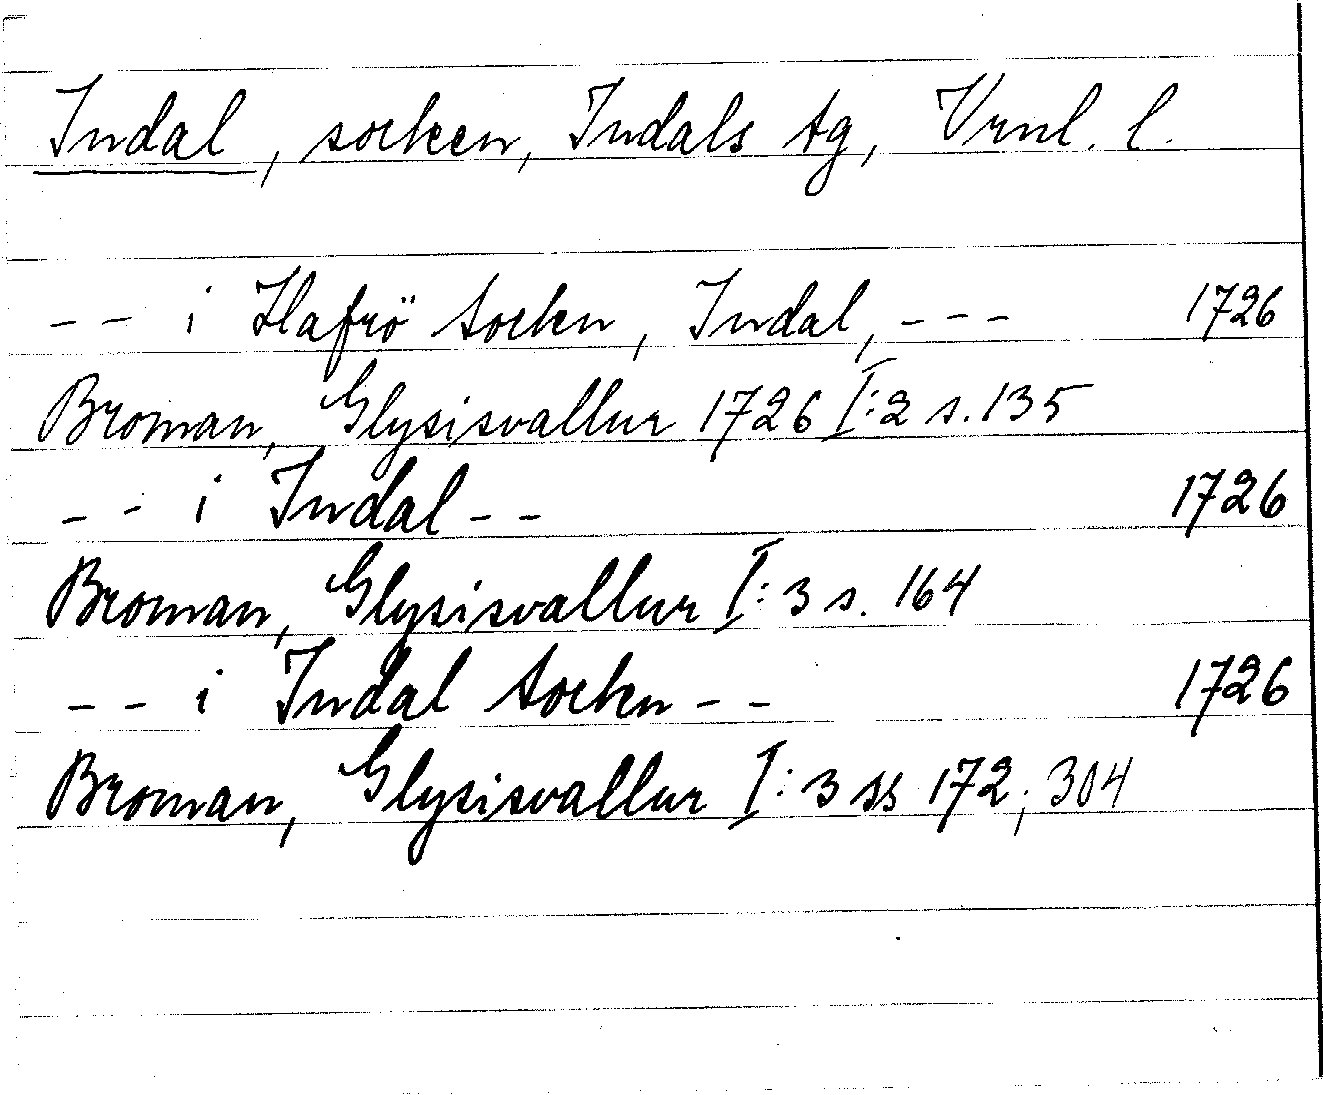 Indal, socken, Indals tg, Vrnl. l.
-- i Hafrö Sockn, Indal, --- 1726
Broman, Glysisvallur 1726 I:2 s. 135
-- i Indal -- 1726
Broman, Glysisvallur I:3 s. 164
-- i Indal Sockn -- 1726
Broman, Glysisvallur I:3 ss 172; 304